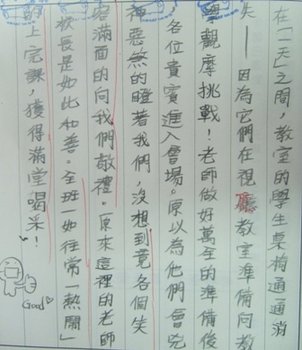 在「一天」之間，教室的學生桌椅通通消
失——因為它們在視聽教室準備向教
觀摩挑戰！老師做好萬全的準備後
各位貴賓進入會場。原以為他們會兇
神惡煞的瞪著我們，沒想到竟各個笑
容滿面的向我們敬禮。原來這裡的老師
校長是如此和善。全班一如往常「熱鬧」
的上完課，獲得滿堂喝采！
Good